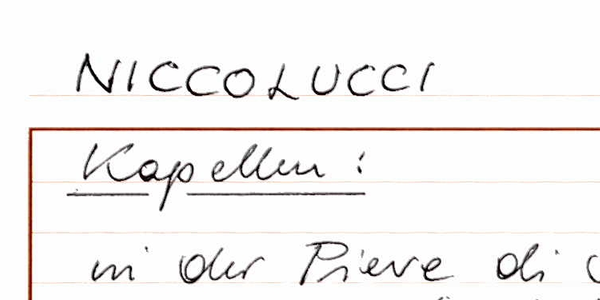 NICCOLUCCI
Kapellen:
in der Pieve di